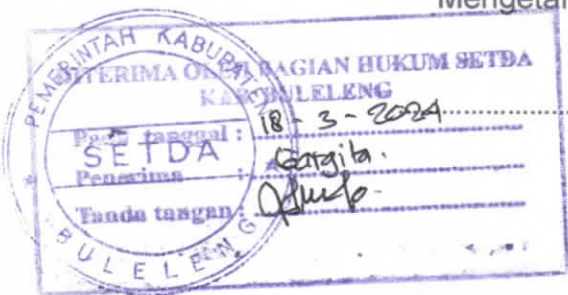 Mengetah
PEMERINTAH KABUPATEN
SETDA
BULELENG
DITERIMA OLEH BAGIAN HUKUM SETDA
KAB. BULELENG
Pada tanggal : 18 - 3 - 2024
Penerima : Gargita.
Tanda tangan :